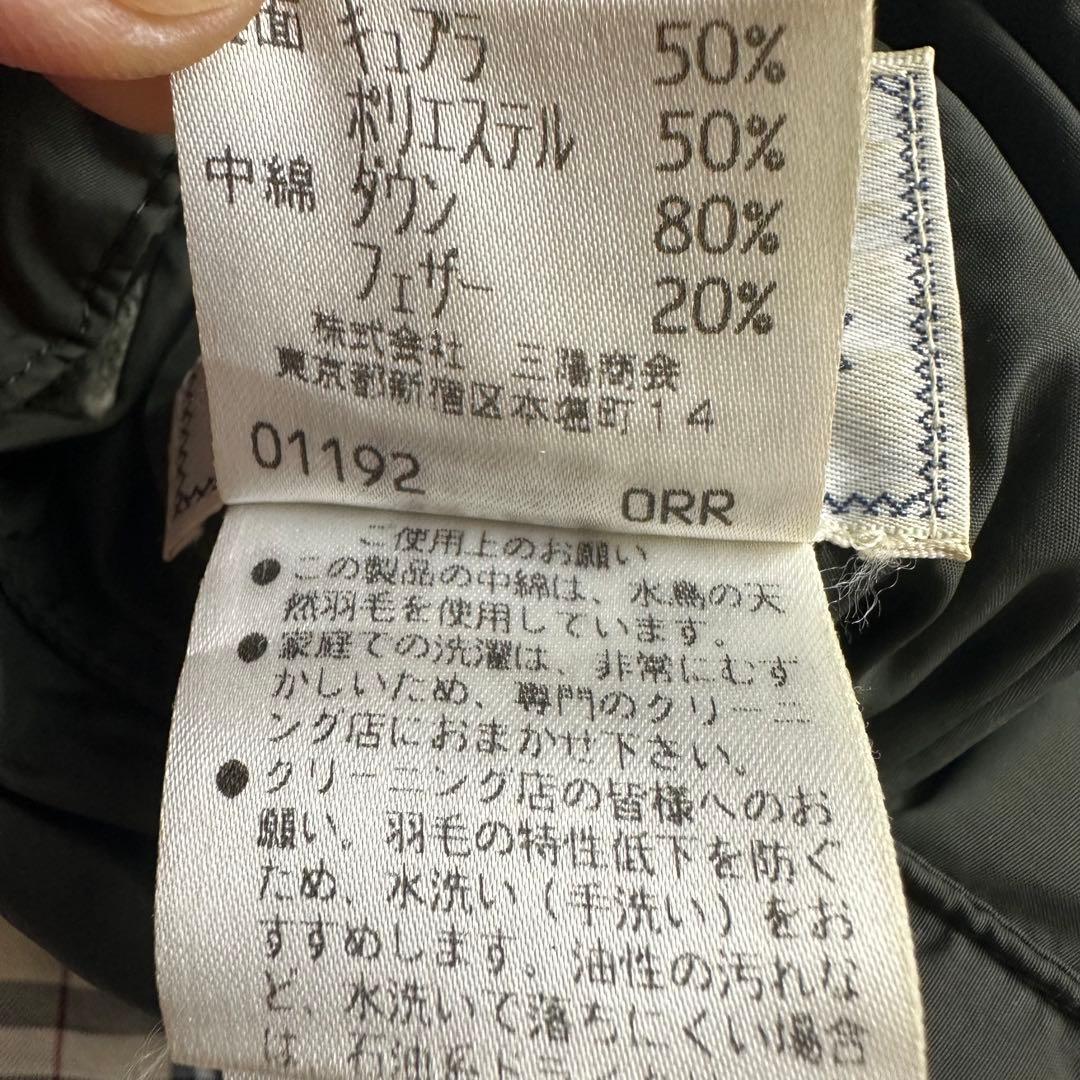 面 キュプラ 50%
ポリエステル 50%
中綿 ダウン 80%
フェザー 20%
株式会社 三陽商会
東京都新宿区本塩町14
01192 ORR
ご使用上のお願い
●この製品の中綿は、水鳥の天
然羽毛を使用しています。
●家庭での洗濯は、非常にむず
かしいため、専門のクリーニ
ング店におまかせ下さい。
●クリーニング店の皆様へのお
願い。羽毛の特性低下を防ぐ
ため、水洗い(手洗い)をお
すすめします。油性の汚れな
ど、水洗いで落ちにくい場合
は、石油系ド